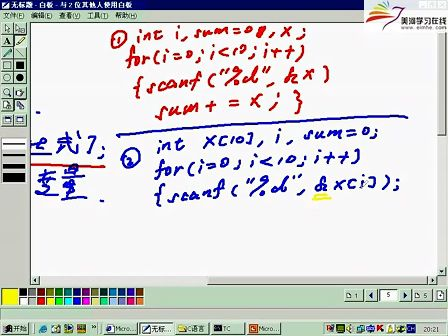 无标题 - 白板 - 与 2 位其他人使用白板
美河学习在线
www.eimhe.com
① int i, sum=0, x;
for(i=0; i<10; i++)
{scanf("%d", &x)
sum+=x; }
式了;
② int x[10], i, sum=0;
for(i=0; i<10; i++)
{scanf("%d", &x[i]);
5
开始
Micro...
无标...
C:\WI...
TC
Micro...
20:21